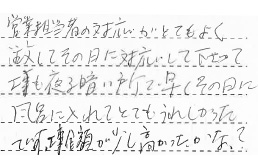 営業担当者の対応がとてもよく
敏してその日に対応いして下さって
壊も夜を暗い所で早くその日に
風呂に入れてとてもうれしかった
です 金額が少し高かったかなって